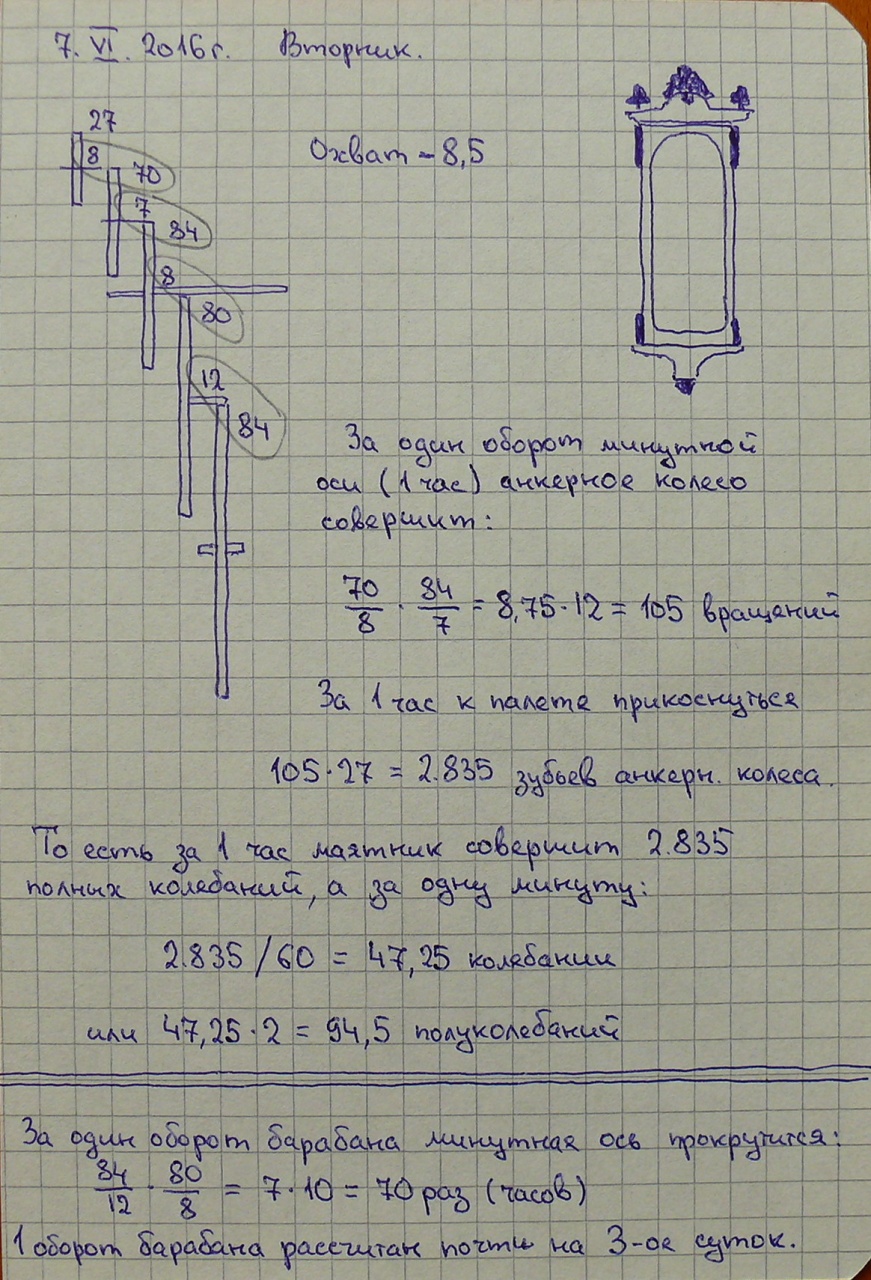 7. VI. 2016г. Вторник.
27
8
70
7
84
8
80
12
84
Охват - 8,5
За один оборот минутной
оси (1 час) анкерное колесо
совершит:
70/8 · 84/7 = 8,75·12 = 105 вращений
За 1 час к палете прикоснуться
105·27 = 2.835 зубьев анкерн. колеса.
То есть за 1 час маятник совершит 2.835
полных колебаний, а за одну минуту:
2.835/60 = 47,25 колебании
или 47,25·2 = 94,5 полуколебаний
За один оборот барабана минутная ось прокрутится:
84/12 · 80/8 = 7·10 = 70 раз (часов)
1 оборот барабана рассчитан почти на 3-ое суток.